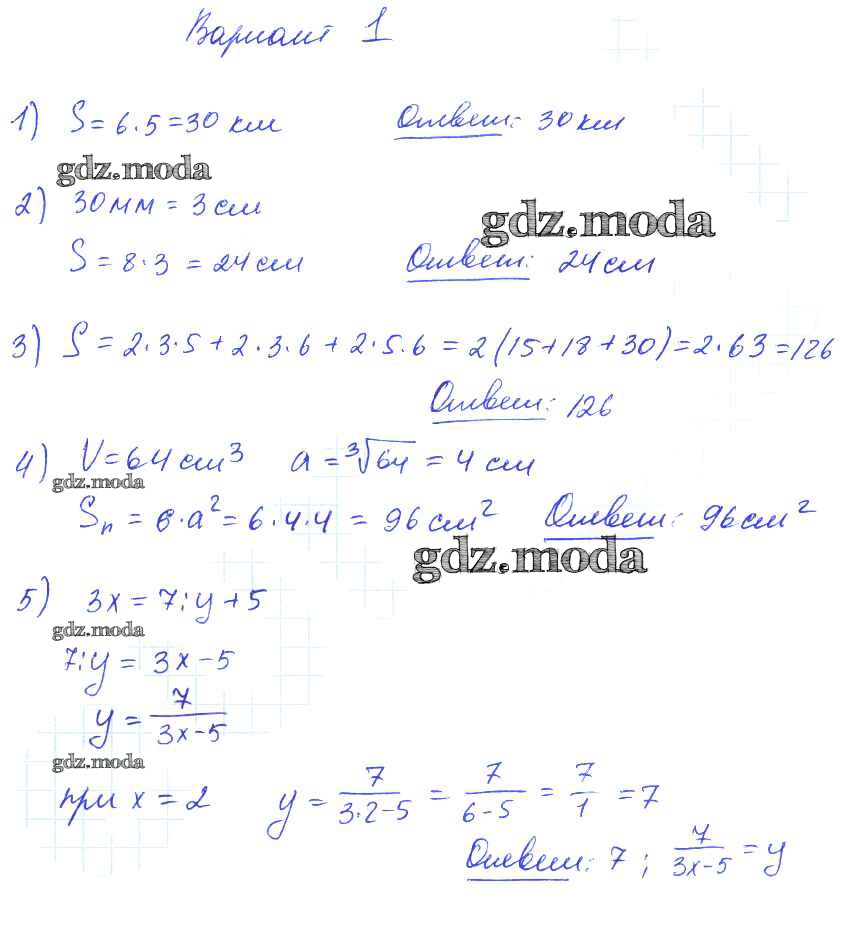 Вариант 1
1) S = 6·5 = 30 км Ответ: 30 км
gdz.moda
2) 30 мм = 3 см
gdz.moda
S = 8·3 = 24 см Ответ: 24 см
3) S = 2·3·5 + 2·3·6 + 2·5·6 = 2(15+18+30) = 2·63 = 126
Ответ: 126
4) V = 64 см³ a = ³√64 = 4 см
gdz.moda
Sп = 6·a² = 6·4·4 = 96 см² Ответ: 96 см²
gdz.moda
5) 3x = 7:y + 5
gdz.moda
7:y = 3x – 5
y = 7/(3x–5)
gdz.moda
при x = 2 y = 7/(3·2–5) = 7/(6–5) = 7/1 = 7
Ответ: 7 ; 7/(3x–5) = y